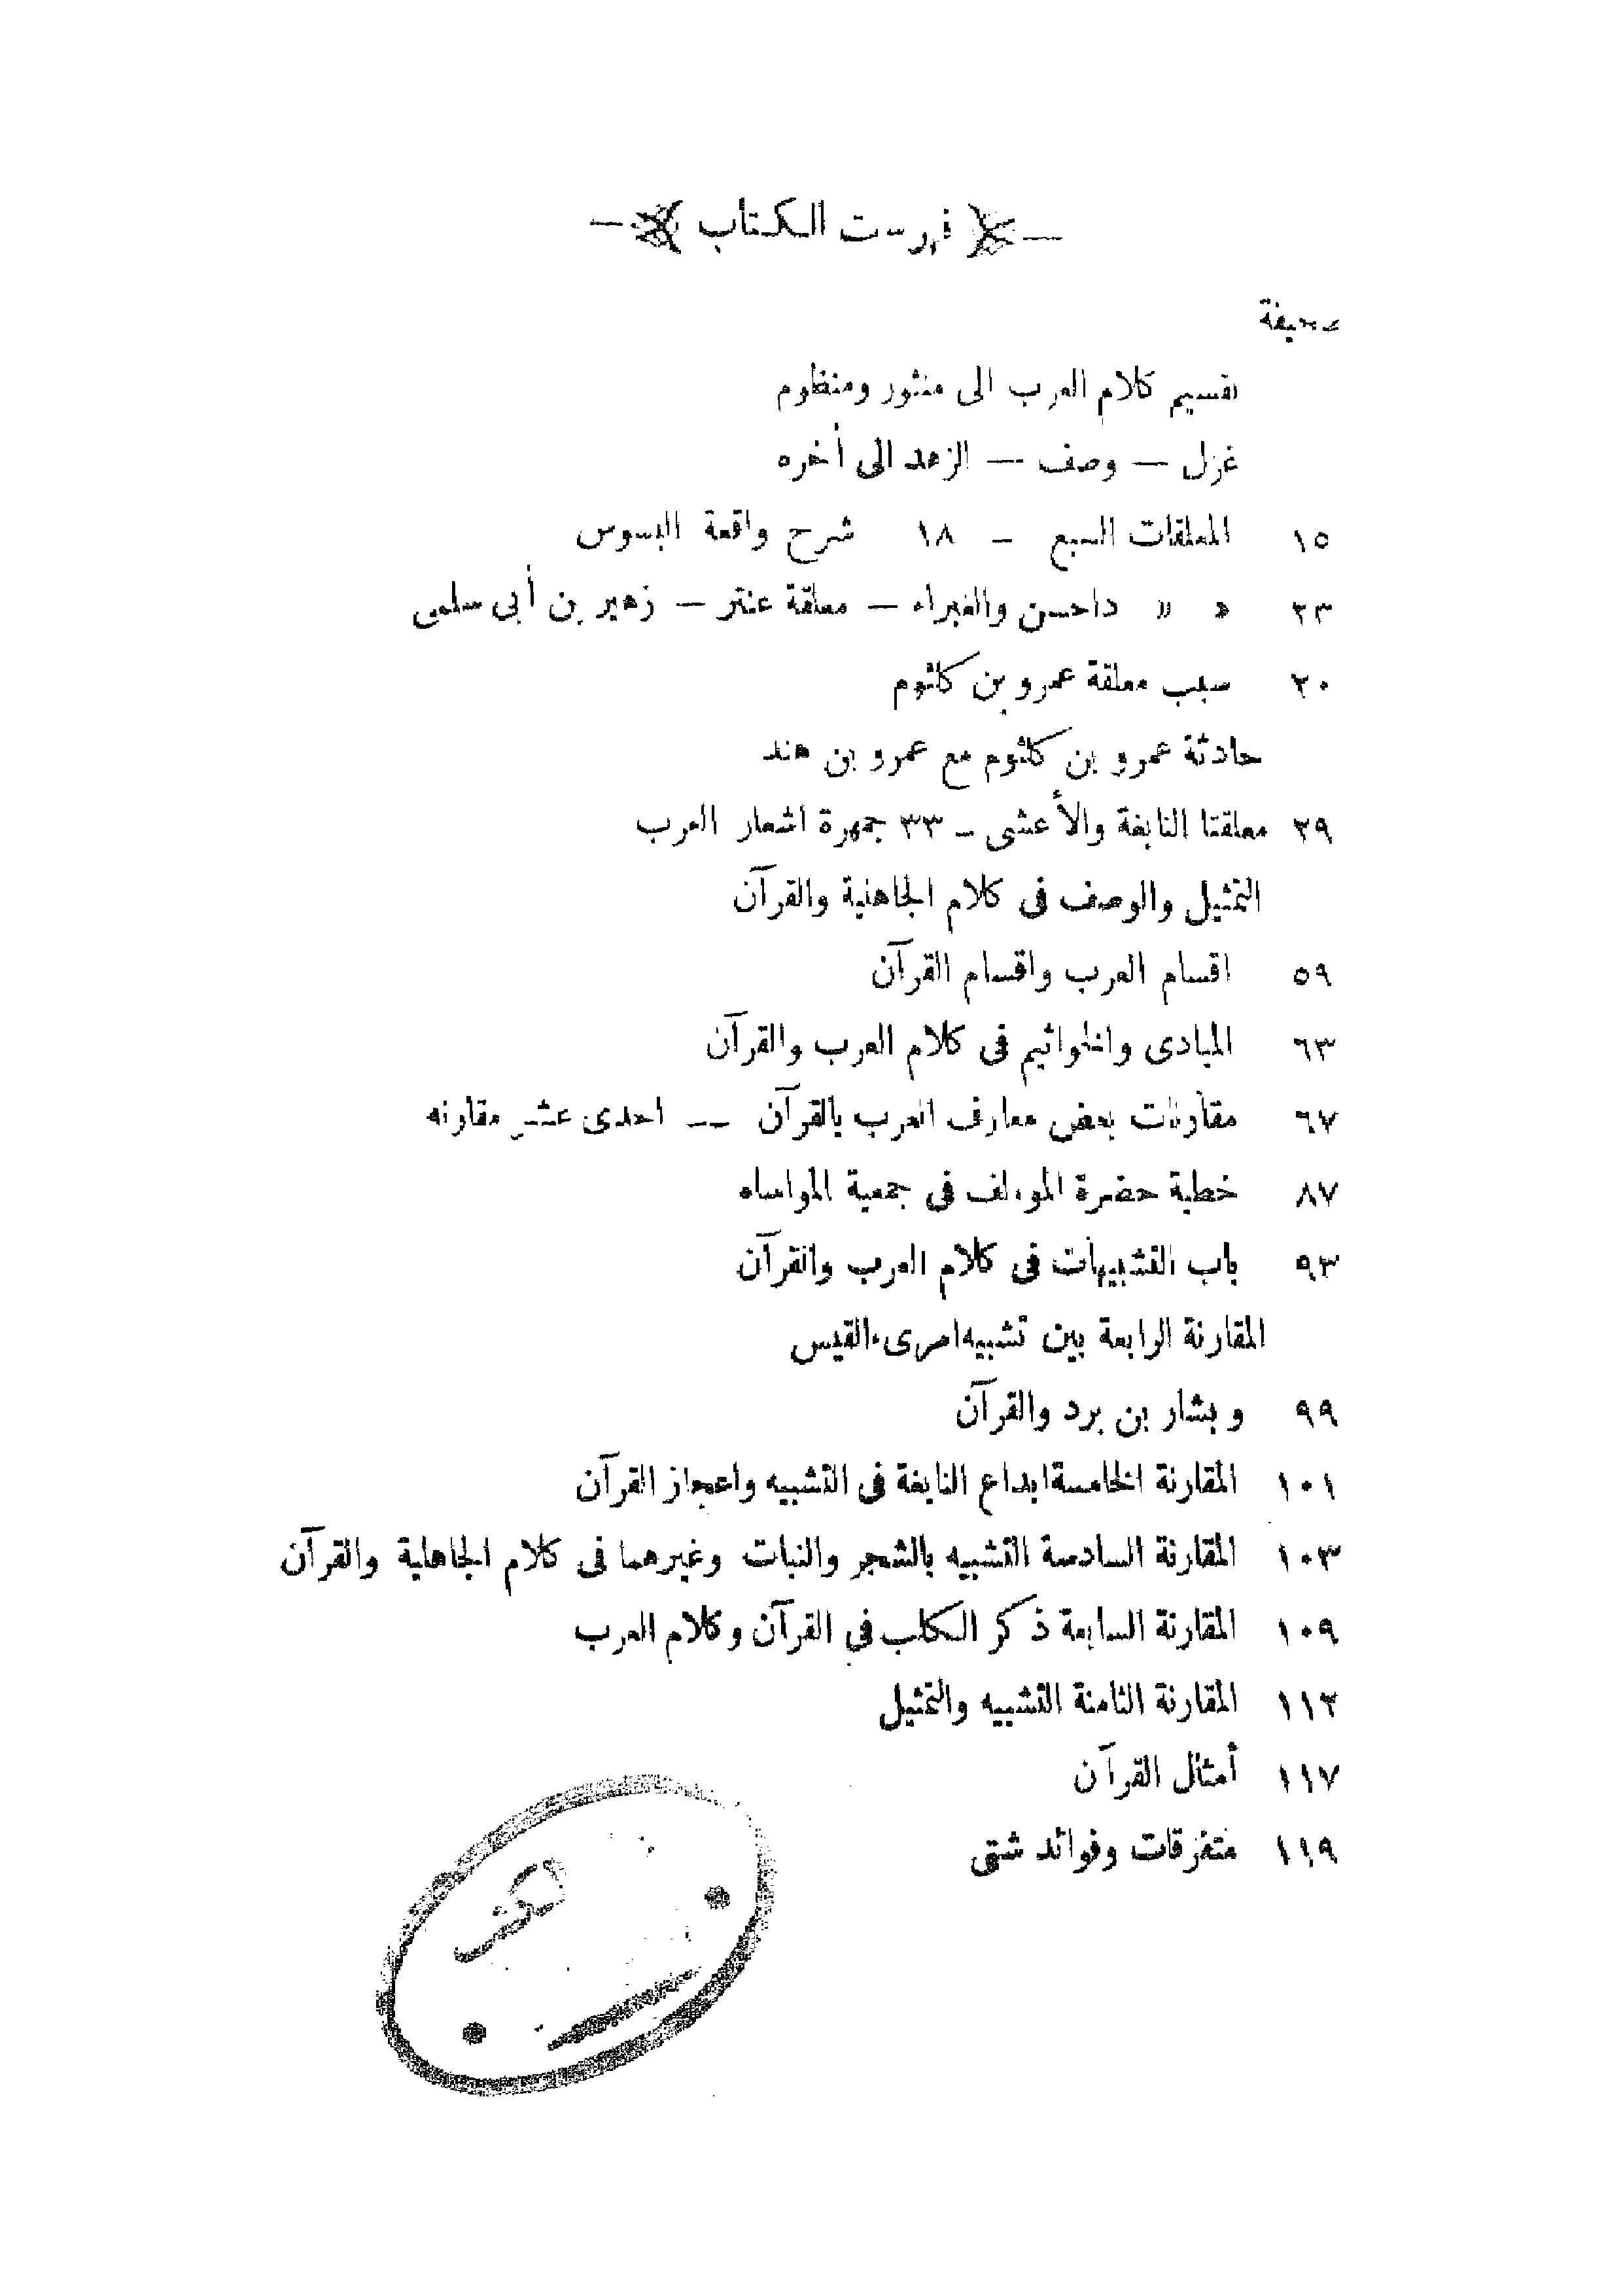 — فهرست الكتاب —
صحيفة
تقسيم كلام العرب الى منثور ومنظوم
غزل — وصف — الزهد الى أخره
١٥ المعلقات السبع – ١٨ شرح واقعة البسوس
٢٣ » » داحس والغبراء – معلقة عنتر – زهير بن أبى سلمى
٢٠ سبب معلقة عمرو بن كلثوم
حادثة عمرو بن كلثوم مع عمرو بن هند
٢٩ معلقتا النابغة والأعشى – ٣٣ جمهرة اشعار العرب
التمثيل والوصف فى كلام الجاهلية والقرآن
٥٩ اقسام العرب واقسام القرآن
٦٣ المبادى والخواتيم فى كلام العرب والقرآن
٦٧ مقارنات بعض معارف العرب بالقرآن –– احدى عشر مقارنه
٨٧ خطبة حضرة الموءلف فى جمعية المواساه
٩٣ باب التشبيهات فى كلام العرب والقرآن
المقارنة الرابعة بين تشبيه امرىء القيس
٩٩ وبشار بن برد والقرآن
١٠١ المقارنة الخامسة ابداع النابغة فى التشبيه واعجاز القرآن
١٠٣ المقارنة السادسة التشبيه بالشجر والنبات وغيرهما فى كلام الجاهلية والقرآن
١٠٩ المقارنة السابعة ذكر الكلب فى القرآن وكلام العرب
١١٢ المقارنة الثامنة التشبيه والتمثيل
١١٧ أمثال القرآن
١١٩ متفرقات وفوائد شتى